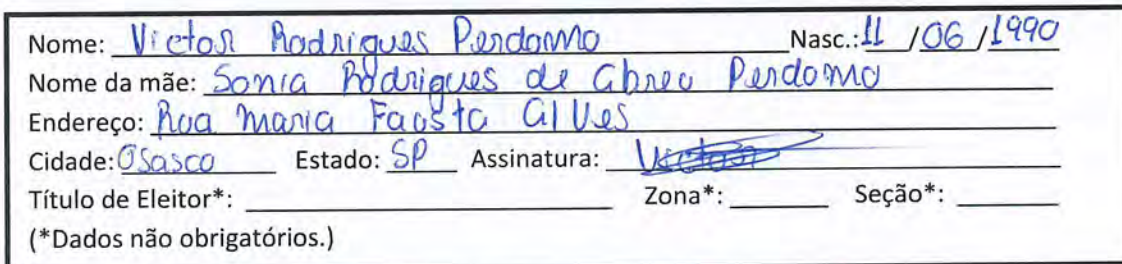 Nome: Victor Rodrigues Perdomo Nasc.: 11 /06 /1990
Nome da mãe: Sonia Rodrigues de Abreu Perdomo
Endereço: Rua Maria Fausta Alves
Cidade: Osasco Estado: SP Assinatura: Victor
Título de Eleitor*: Zona*: Seção*:
(*Dados não obrigatórios.)